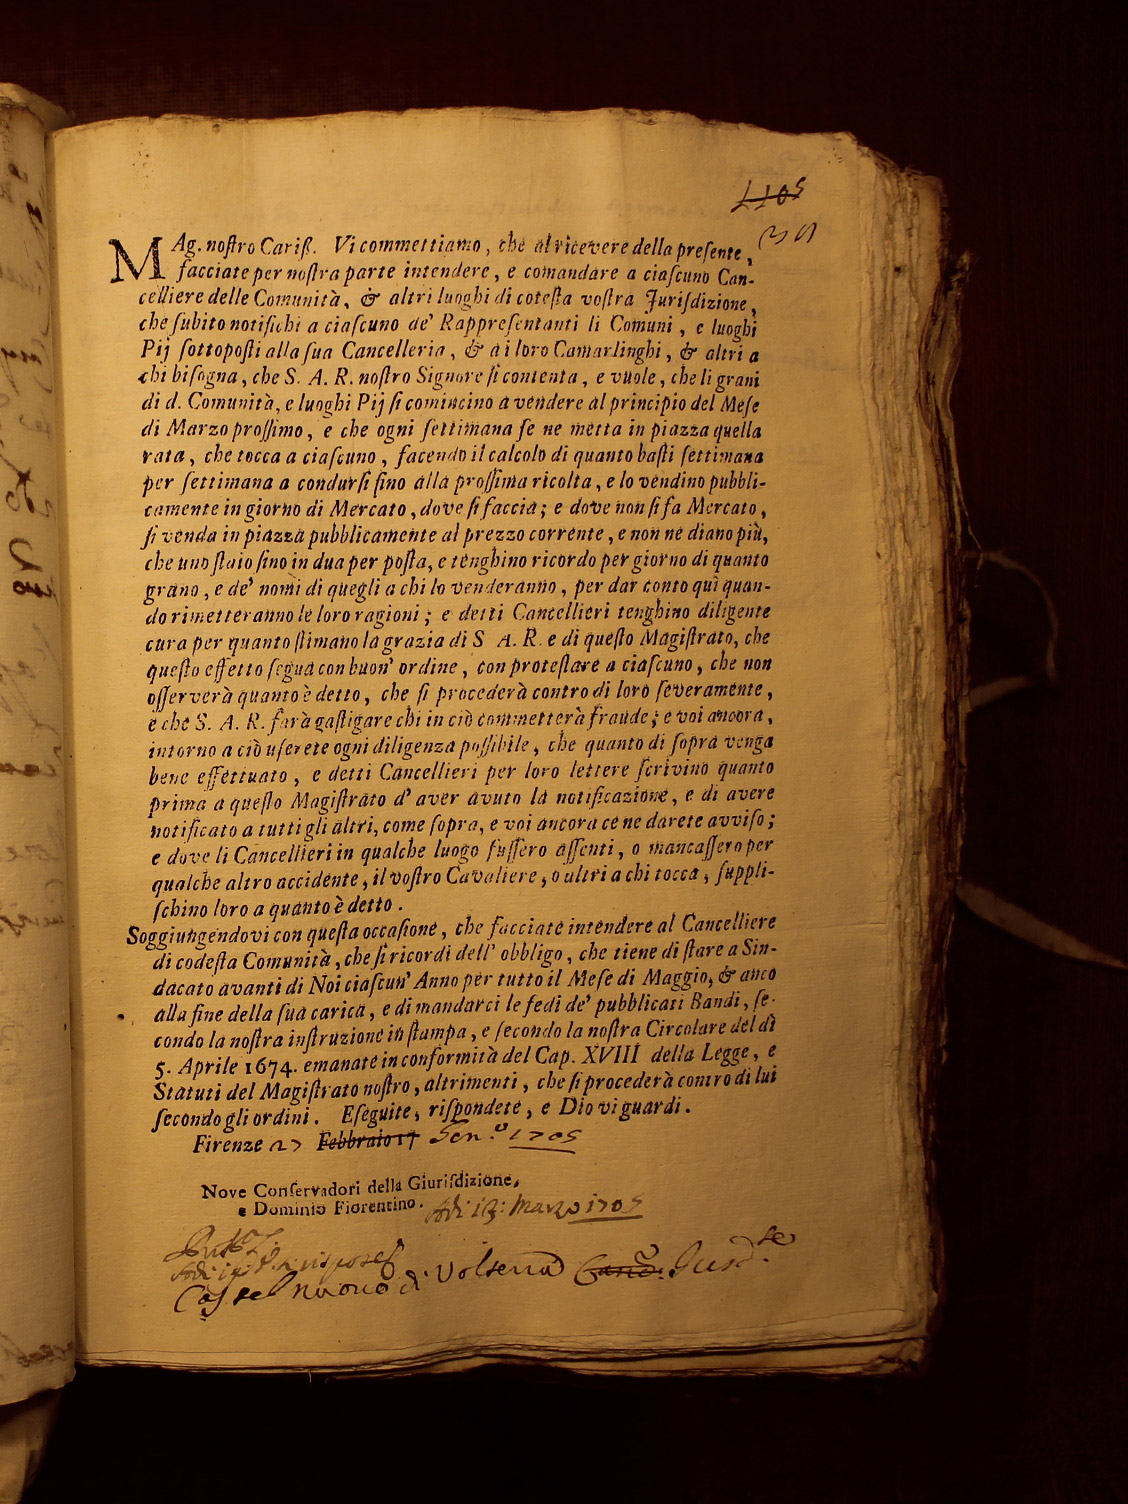 MAg. nostro Cariß. Vi commettiamo, che al ricevere della presente,
facciate per nostra parte intendere, e comandare a ciascuno Can-
celliere delle Comunità, & altri luoghi di cotesta vostra Jurisdizione,
che subito notifichi a ciascuno de' Rappresentanti li Comuni, e luoghi
Pij sottoposti alla sua Cancelleria, & a i loro Camarlinghi, & altri a
chi bisogna, che S. A. R. nostro Signore si contenta, e vuole, che li grani
di d. Comunità, e luoghi Pij si comincino a vendere al principio del Mese
di Marzo prossimo, e che ogni settimana se ne metta in piazza quella
rata, che tocca a ciascuno, facendo il calcolo di quanto basti settimana
per settimana a condursi sino alla prossima ricolta, e lo vendino pubbli-
camente in giorno di Mercato, dove si faccia; e dove non si fa Mercato,
si venda in piazza pubblicamente al prezzo corrente, e non ne diano più,
che uno staio sino in dua per posta, e tenghino ricordo per giorno di quanto
grano, e de' nomi di quegli a chi lo venderanno, per dar conto quì quan-
do rimetteranno le loro ragioni; e detti Cancellieri tenghino diligente
cura per quanto stimano la grazia di S A. R. e di questo Magistrato, che
questo effetto segua con buon' ordine, con protestare a ciascuno, che non
osserverà quanto è detto, che si procederà contro di loro severamente,
e che S. A. R. farà gastigare chi in ciò commetterà fraude; e voi ancora,
intorno a ciò userete ogni diligenza possibile, che quanto di sopra venga
bene effettuato, e detti Cancellieri per loro lettere scrivino quanto
prima a questo Magistrato d' aver avuto la notificazione, e di avere
notificato a tutti gli altri, come sopra, e voi ancora ce ne darete avviso;
e dove li Cancellieri in qualche luogo fussero assenti, o mancassero per
qualche altro accidente, il vostro Cavaliere, o altri a chi tocca, suppli-
schino loro a quanto è detto.
Soggiungendovi con questa occasione, che facciate intendere al Cancelliere
di codesta Comunità, che si ricordi dell' obbligo, che tiene di stare a Sin-
dacato avanti di Noi ciascun' Anno per tutto il Mese di Maggio, & anco
alla fine della sua carica, e di mandarci le fedi de' pubblicati Bandi, se-
condo la nostra instruzione in stampa, e secondo la nostra Circolare del dì
5. Aprile 1674. emanate in conformità del Cap. XVIII della Legge, e
Statuti del Magistrato nostro, altrimenti, che si procederà contro di lui
secondo gli ordini. Eseguite, rispondete, e Dio vi guardi.
Firenze 27 Febbraio 17 Gen.º 1705
Nove Conservadori della Giurisdizione,
e Dominio Fiorentino. Adì 13: Marzo 1705
Castel nuovo di Volterra